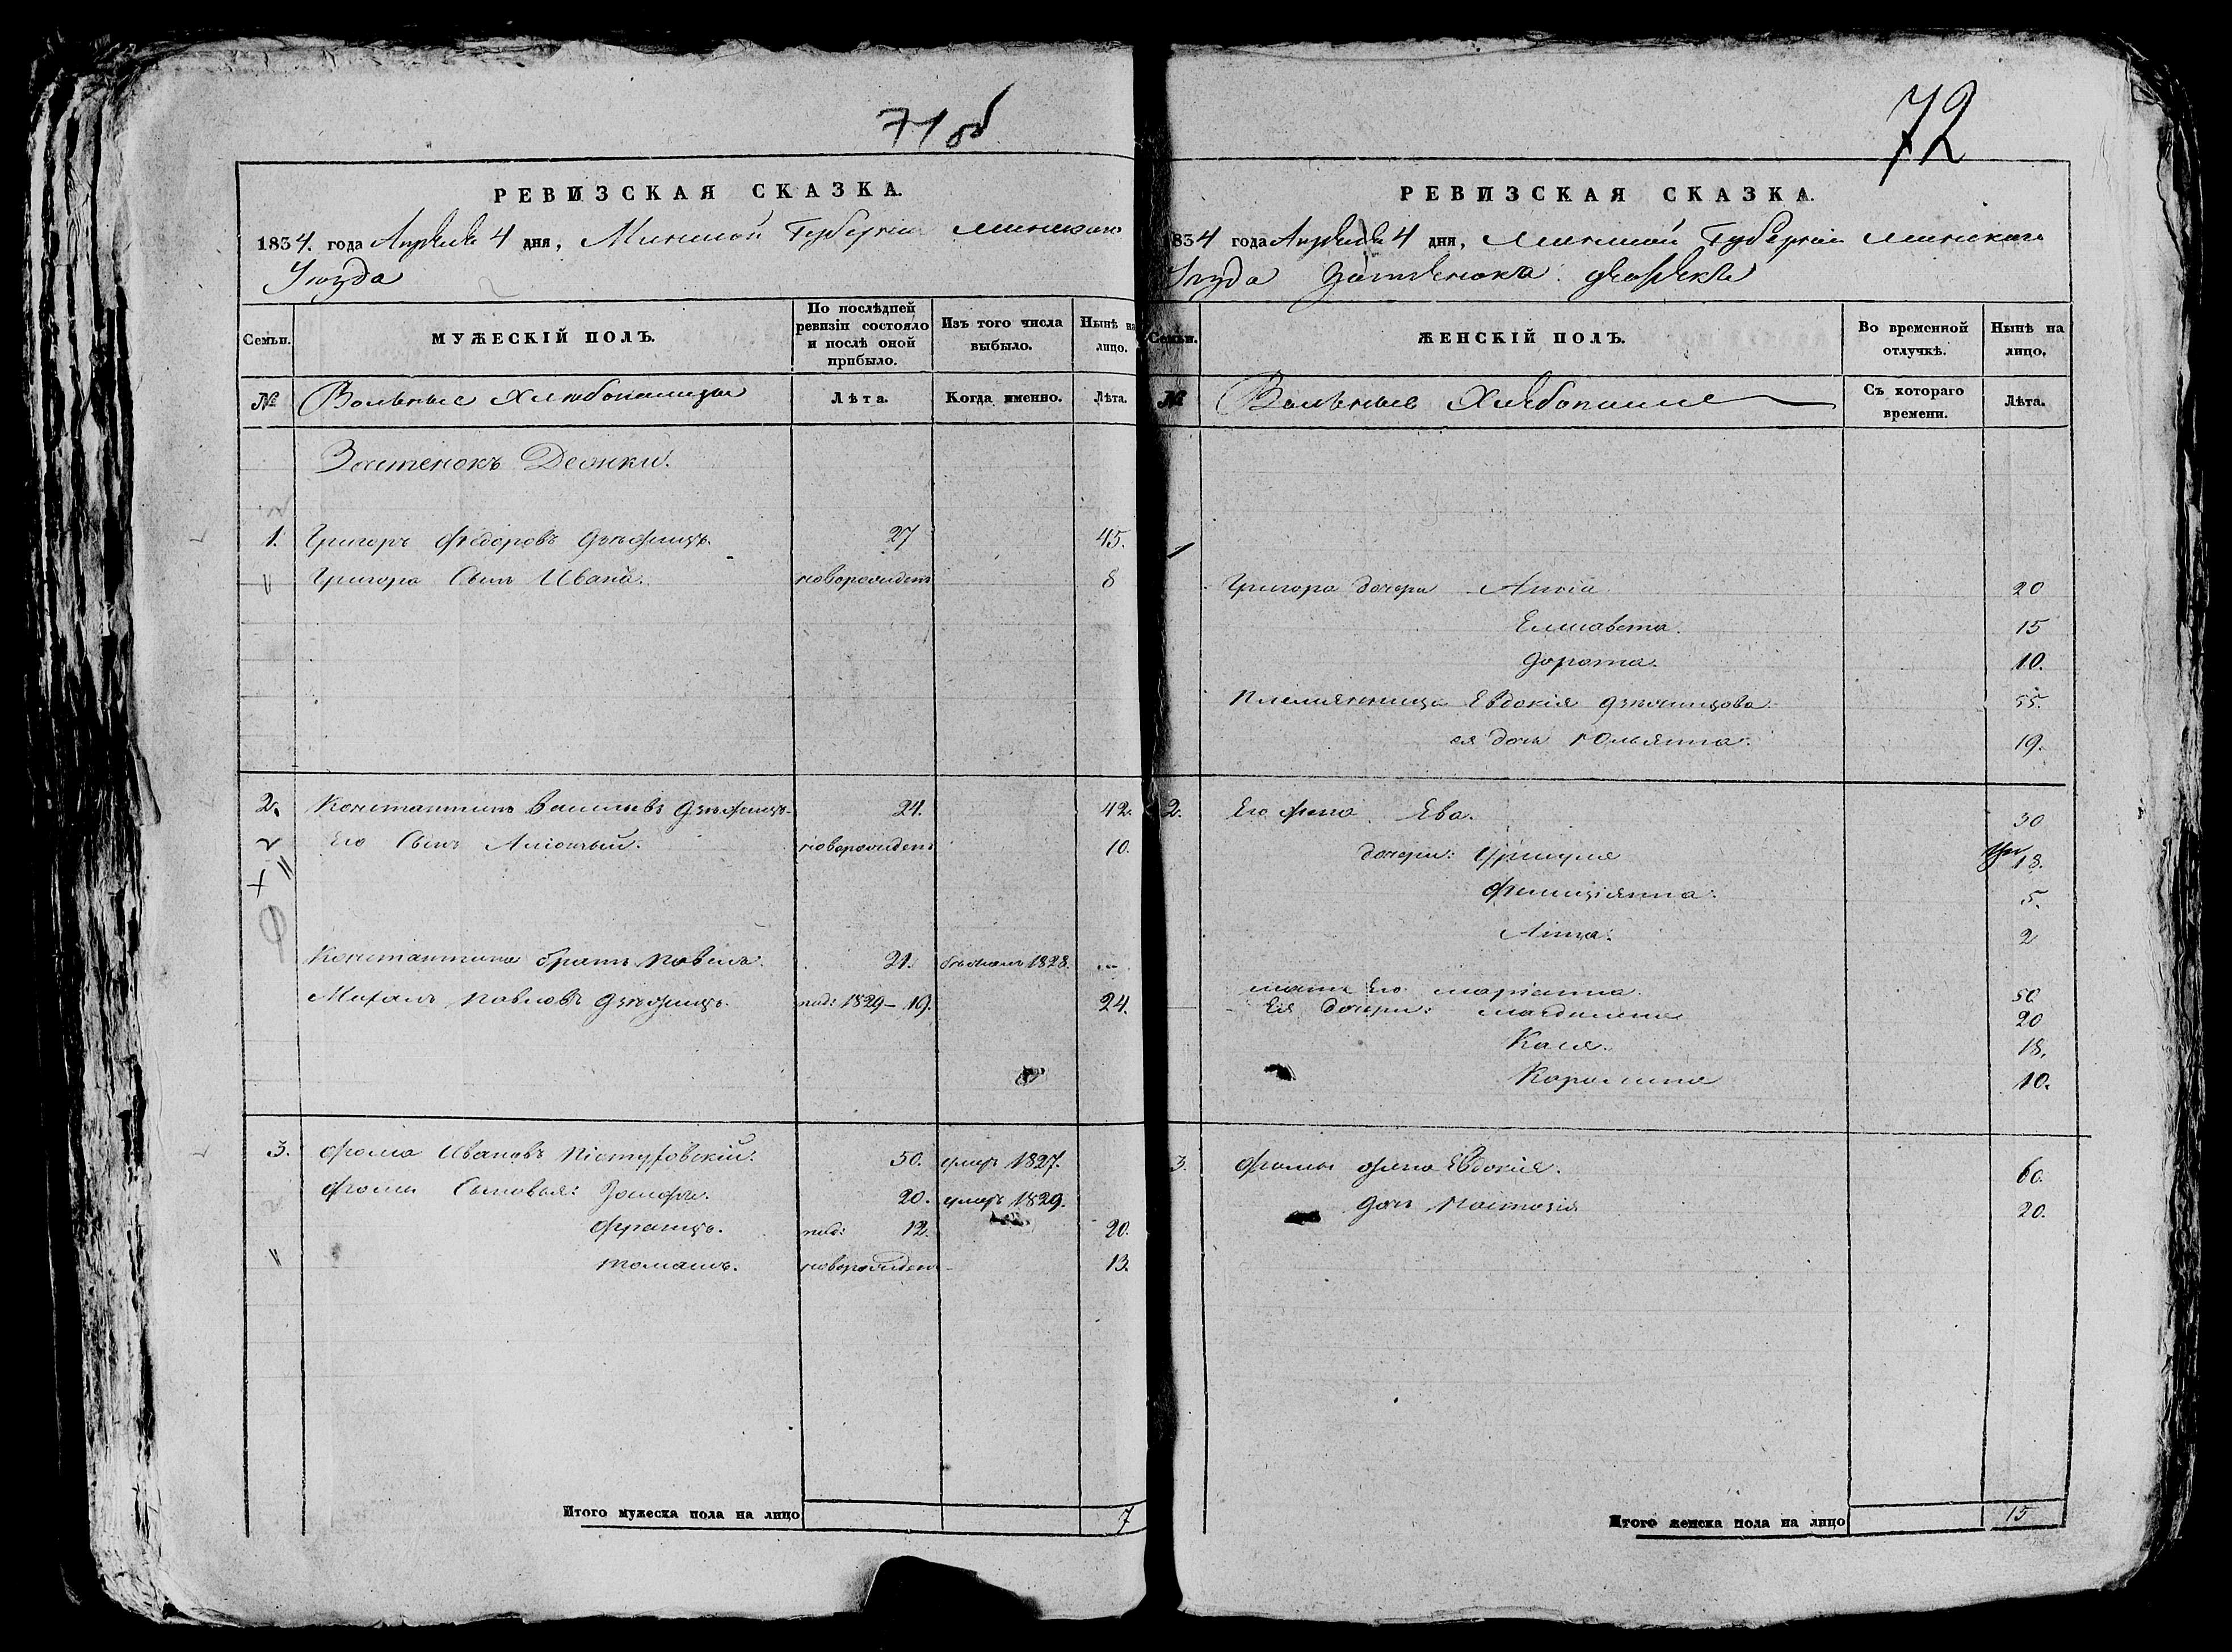 71 об
РЕВИЗСКАЯ СКАЗКА.
1834. года Апреля 4 дня, Минской Губерніи Минскаго
Уезда
Семьи.
МУЖЕСКІЙ ПОЛЪ.
По послѣдней ревизіи состояло и послѣ оной прибыло.
Изъ того числа выбыло.
Нынѣ на лицо.
№
Вольные Хлебопашцы
Лѣта.
Когда именно.
Лѣта.
Застенокъ
1. Григоръ Федоровъ 27 45.
Григора Сынъ Иванъ. новорожденъ 8
2. Константинъ Васильевъ 24. 42.
Его Сынъ новорожденъ 10.
Константина братъ Павелъ. 21. бежалъ 1828.
Михалъ Павловъ 1829 – 19. 24.
3. Фома Ивановъ 50. умеръ 1827.
Фомы Сыновья: 20. умеръ 1829.
Францъ. 12. 20.
Томашъ. новорожденъ 13.
Итого мужеска пола на лицо 7
72
РЕВИЗСКАЯ СКАЗКА.
1834 года Апреля 4 дня, Минской Губерніи Минскаго
Уезда Застенка
Семьи.
ЖЕНСКІЙ ПОЛЪ.
Во временной отлучкѣ.
Нынѣ на лицо.
№
Вольные
Съ котораго времени.
Лѣта.
1
Григора дочери Анна 20
Елисавета. 15
Дорота. 10.
Племянница Евдокія 55.
ея дочь Юльянна. 19.
2. Его жена Ева. 30
дочери: 18.
Фелиціянна. 5.
Анна. 2
мать Его Маріанна. 50
Ея дочери: Магдалена 20
Касия. 18.
Каролина 10.
3. Фомы жена Евдокія. 60.
дочь Настазія 20.
Итого женска пола на лицо 15